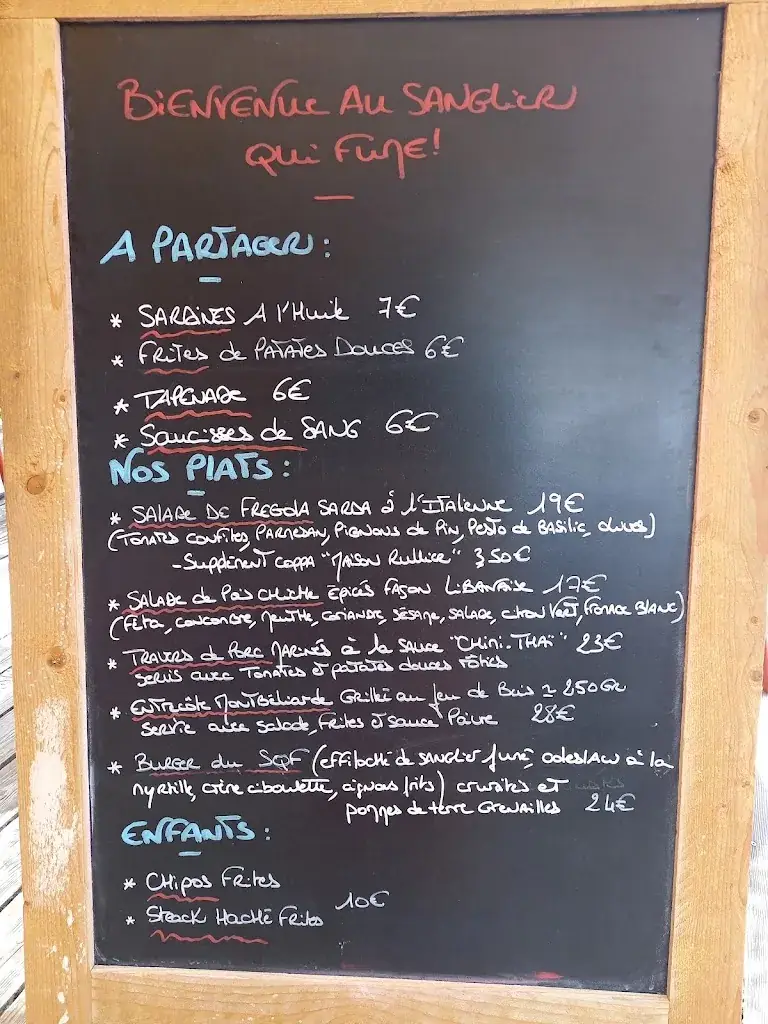 BiENVENUE AU SANGLiER
Qui FUME!
A PARTAGER :
* SARDiNES A l'Huile 7€
* FRiTES de PATATES DOUCES 6€
* TAPENADE 6€
* SAUCiSSES de SANG 6€
NOS PlATS :
* SALADE DE FREGOlA SARDA à l'ITALiENNE 19€
(TOMATES CONFiTES, PARMESAN, PiGNONS de PiN, PESTO de BASiLic, olives)
-SUPPlÉMENT COPPA "MAiSON Rullière" 3,50€
* SALADE de Pois CHiCHE ÉPICÉS FAÇON LiBANAiSE 17€
(FÉTA, CONCOMBRE, MENTHE, CORiANDRE, SÉSAME, SALADE, citron VERT, FROMAGE BLANC)
* TRAVERS de PORC MARiNÉS à la SAUCE "CHiMi-THAÏ" 23€
SERViS avec TOMATES et patates douces rôties
* ENTRECÔTE MONTBÉLiARDE GRillÉE au feu de Bois ≃ 250GR
SERViE avec salade, FRiTES et SAUCE Poivre 28€
* BURGER du SQF (effiloché de SANGLiER fumé, coleslaw à la
myrtille, crème ciboulette, oignons frits) crudités et
pommes de terre GRENAillES 24€
ENFANTS :
* CHiPOS FRiTES
10€
* STEACK HACHÉ FRiTES